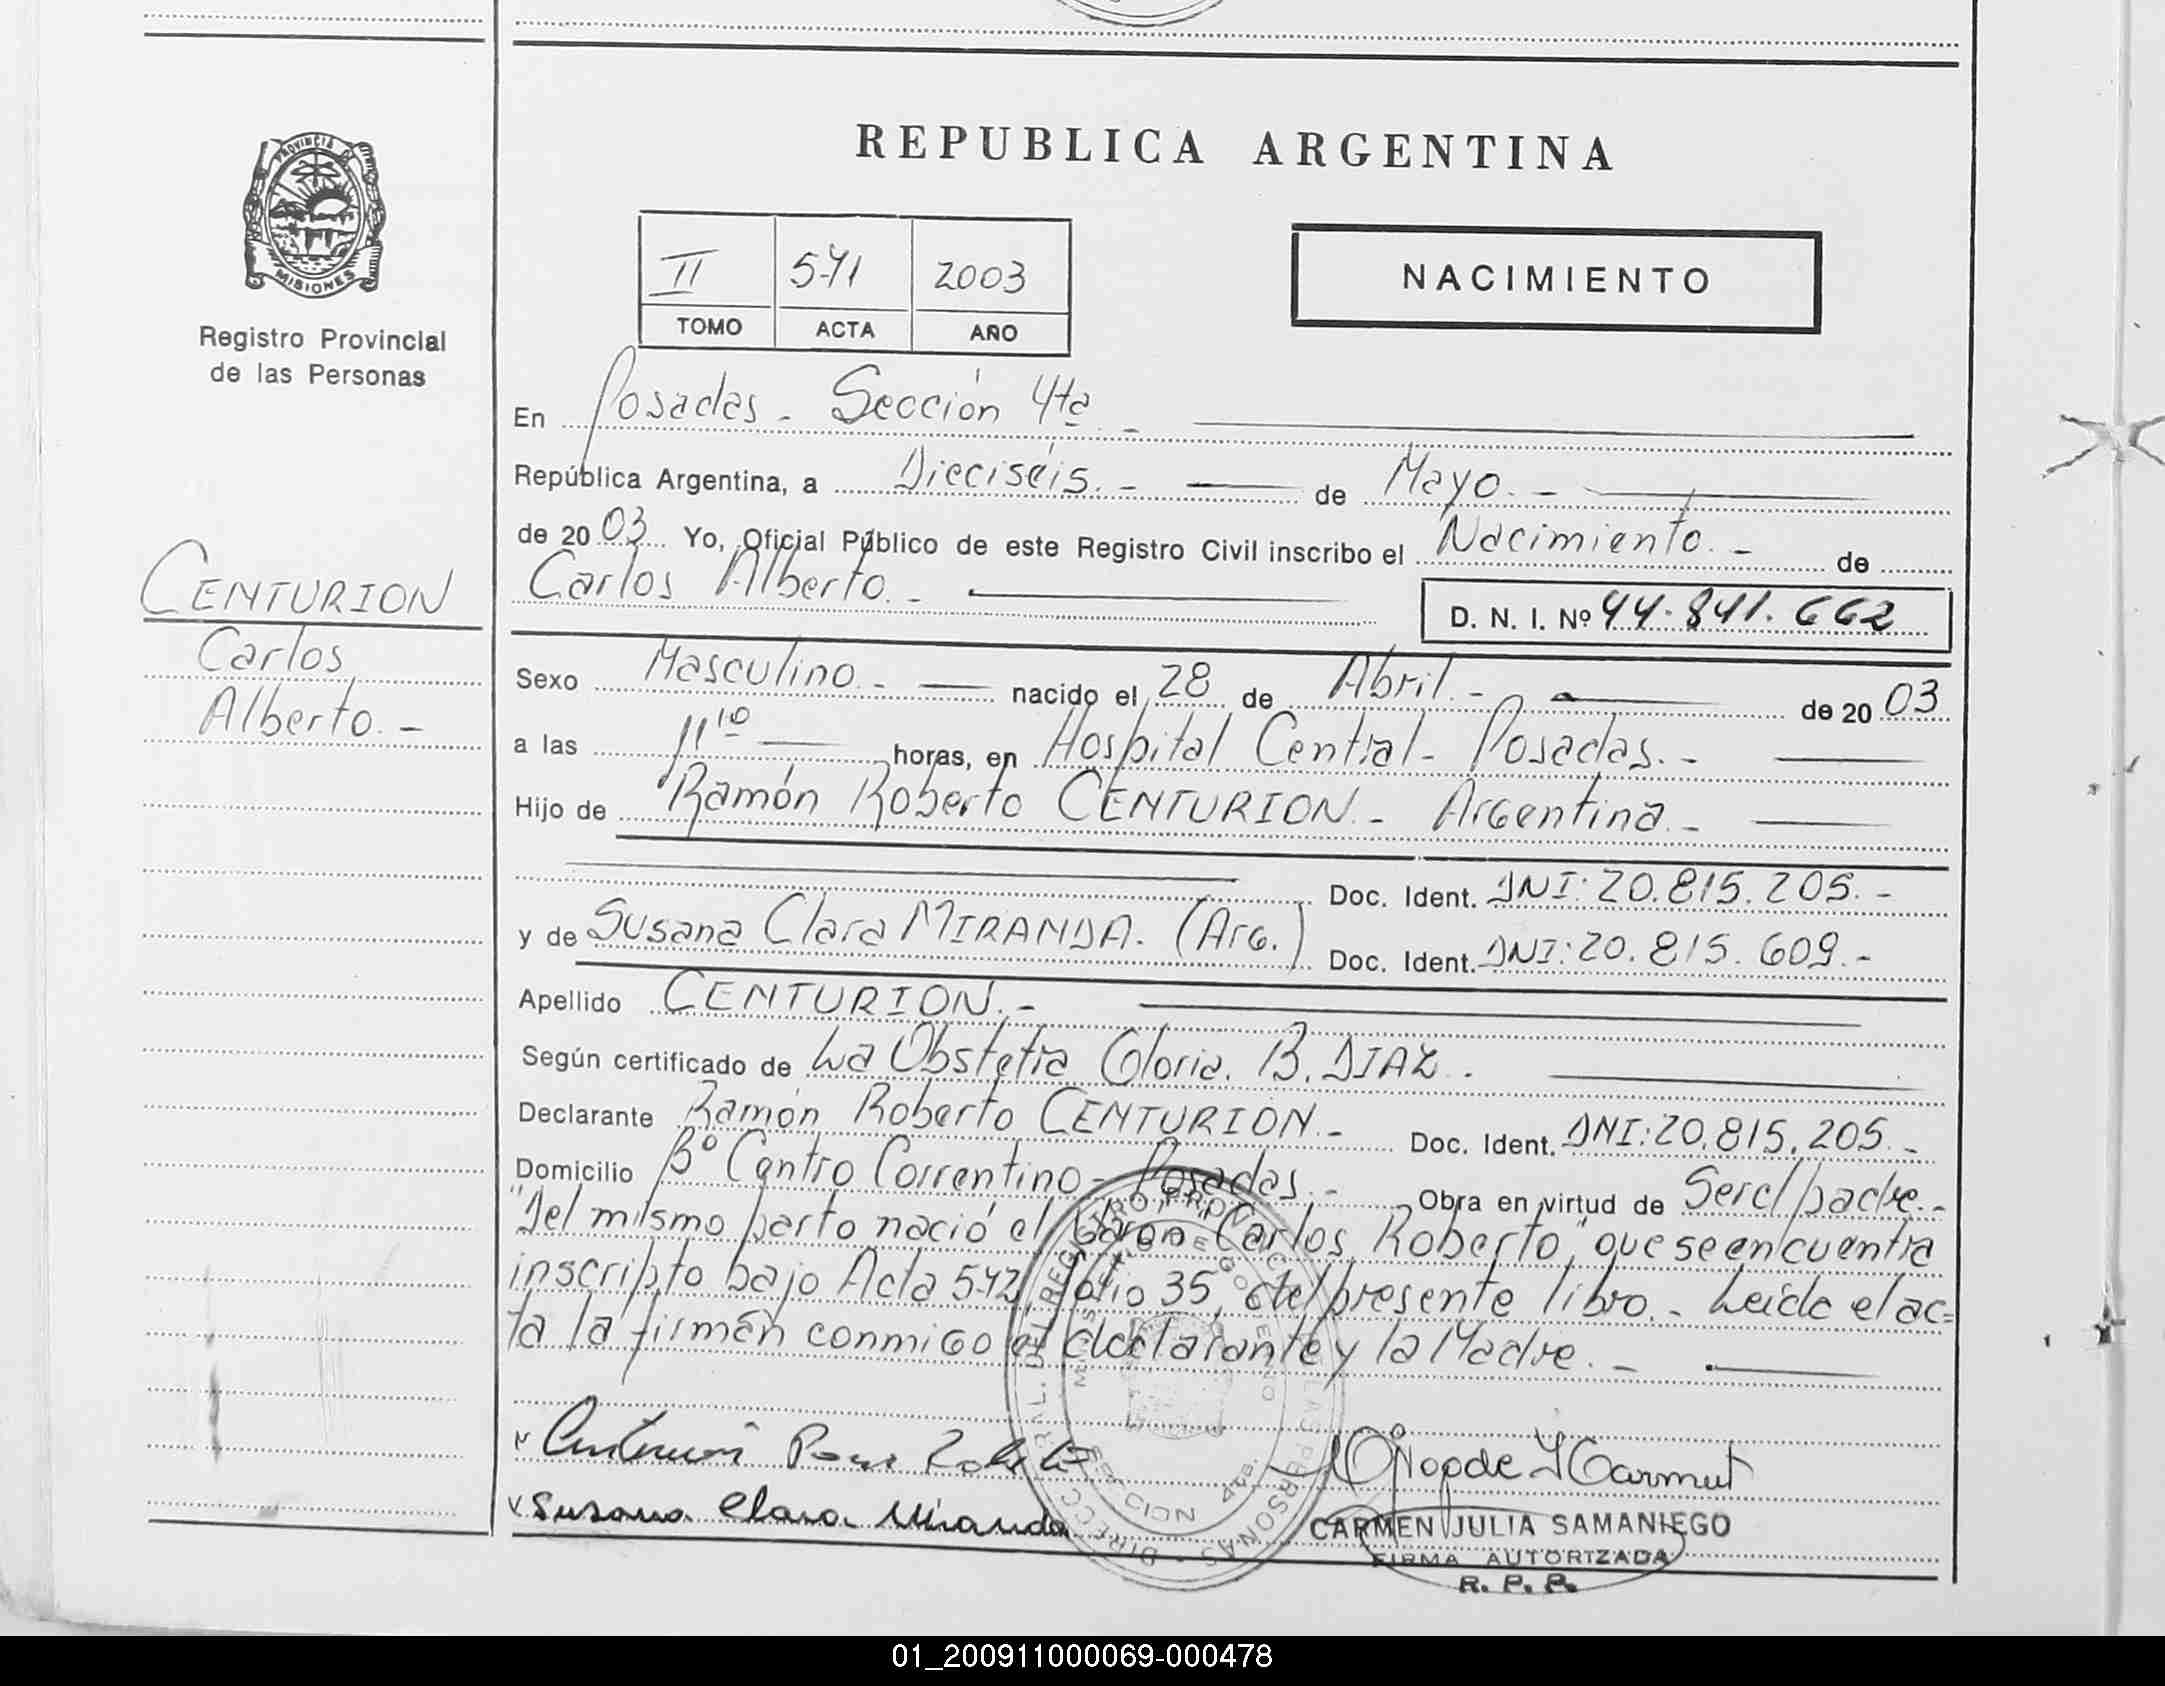 REPUBLICA ARGENTINA
PROVINCIA DE MISIONES
Registro Provincial
de las Personas
II 541 2003
TOMO ACTA AÑO
NACIMIENTO
En Posadas - Sección 4ta. -
República Argentina, a Dieciséis. - de Mayo. -
de 2003 Yo, Oficial Público de este Registro Civil inscribo el Nacimiento. - de
Carlos Alberto. -
D. N. I. Nº 44.841.662
CENTURION
Carlos
Alberto. -
Sexo Masculino. - nacido el 28 de Abril. - de 2003
a las 11 10 horas, en Hospital Central - Posadas. -
Hijo de Ramón Roberto CENTURION. - Argentina. -
Doc. Ident. DNI: 20.815.205. -
y de Susana Clara MIRANDA. (Arg.) Doc. Ident. DNI: 20.815.609. -
Apellido CENTURION. -
Según certificado de La Obstetra Gloria. B. DIAZ.
Declarante Ramón Roberto CENTURION. - Doc. Ident. DNI: 20.815.205. -
Domicilio Bº Centro Correntino - Posadas. - Obra en virtud de Ser el padre. -
"Del mismo parto nació el Varon Carlos Roberto", que se encuentra
inscripto bajo Acta 542, folio 35, del presente libro. - Leida el ac=
ta la firman conmigo el declarante y la Madre. -
Centurion Ramon Roberto
Susana Clara Miranda
CARMEN JULIA SAMANIEGO
FIRMA AUTORIZADA
R. P. P.
01_200911000069-000478